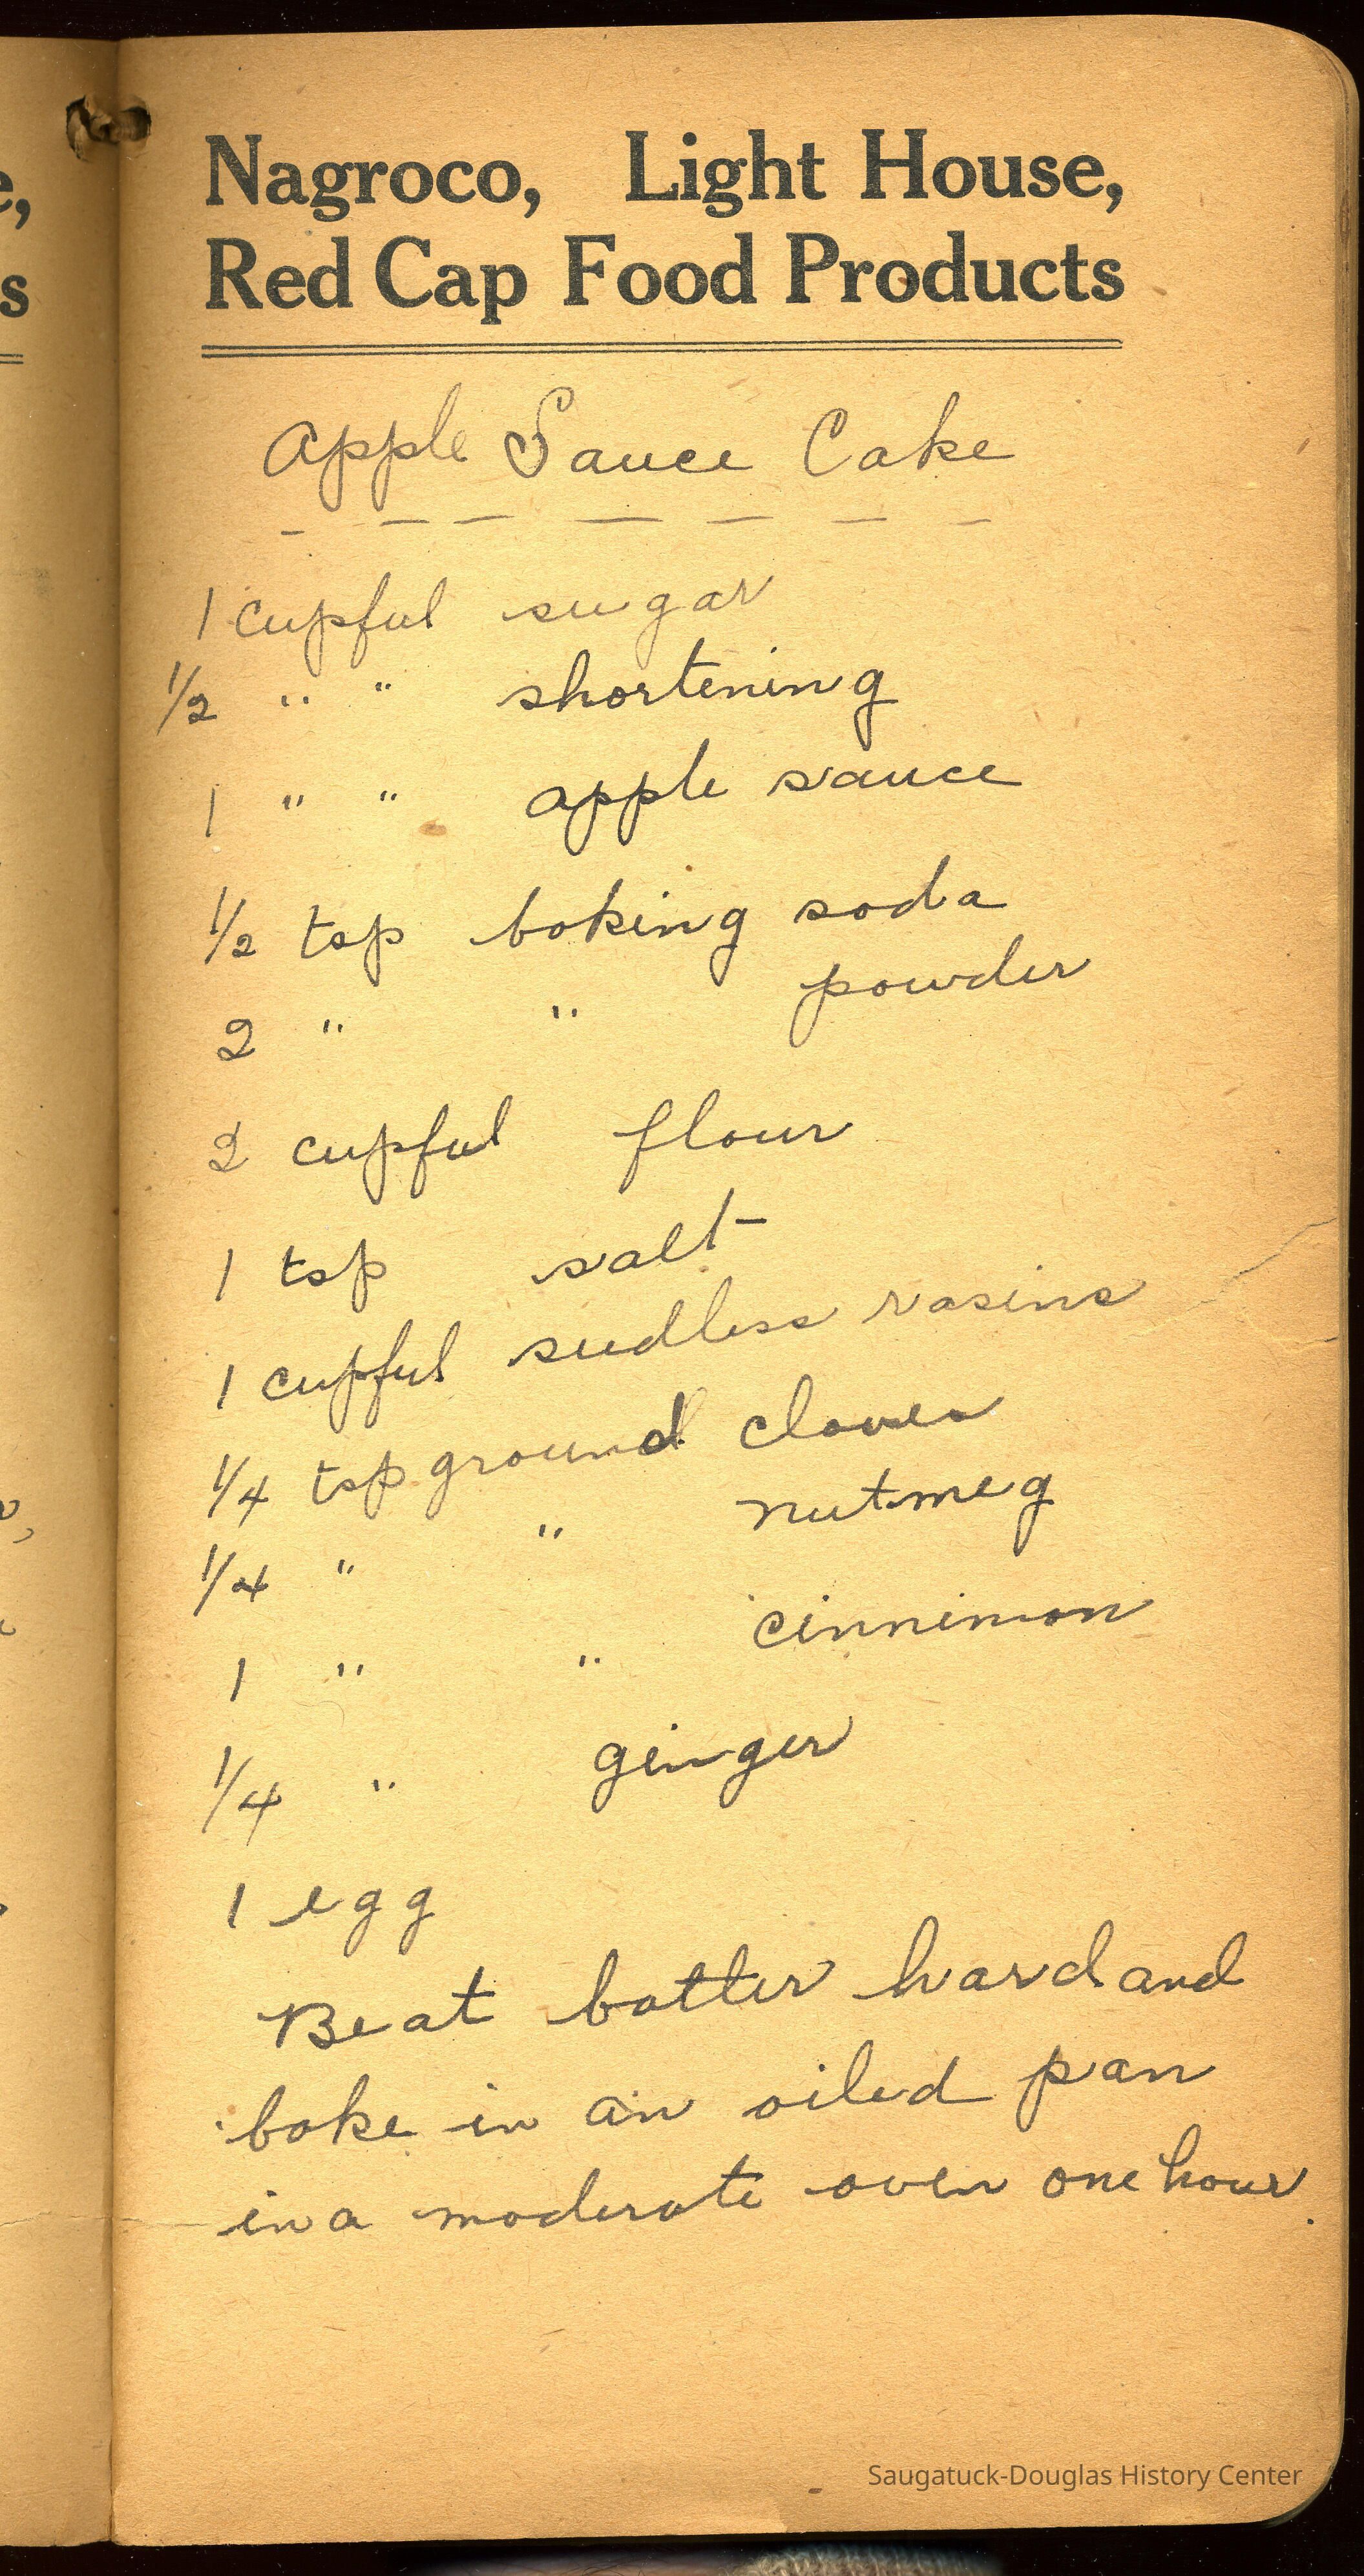 Nagroco, Light House,
Red Cap Food Products
Apple Sauce Cake
1 cupful sugar
1/2 " " shortening
1 " " apple sauce
1/2 tsp baking soda
2 " " powder
2 cupful flour
1 tsp salt
1 cupful seedless rasins
1/4 tsp ground cloves
1/4 " " nutmeg
1 " " cinnimon
1/4 " ginger
1 egg
Beat batter hard and
bake in an oiled pan
in a moderate oven one hour.
Saugatuck-Douglas History Center